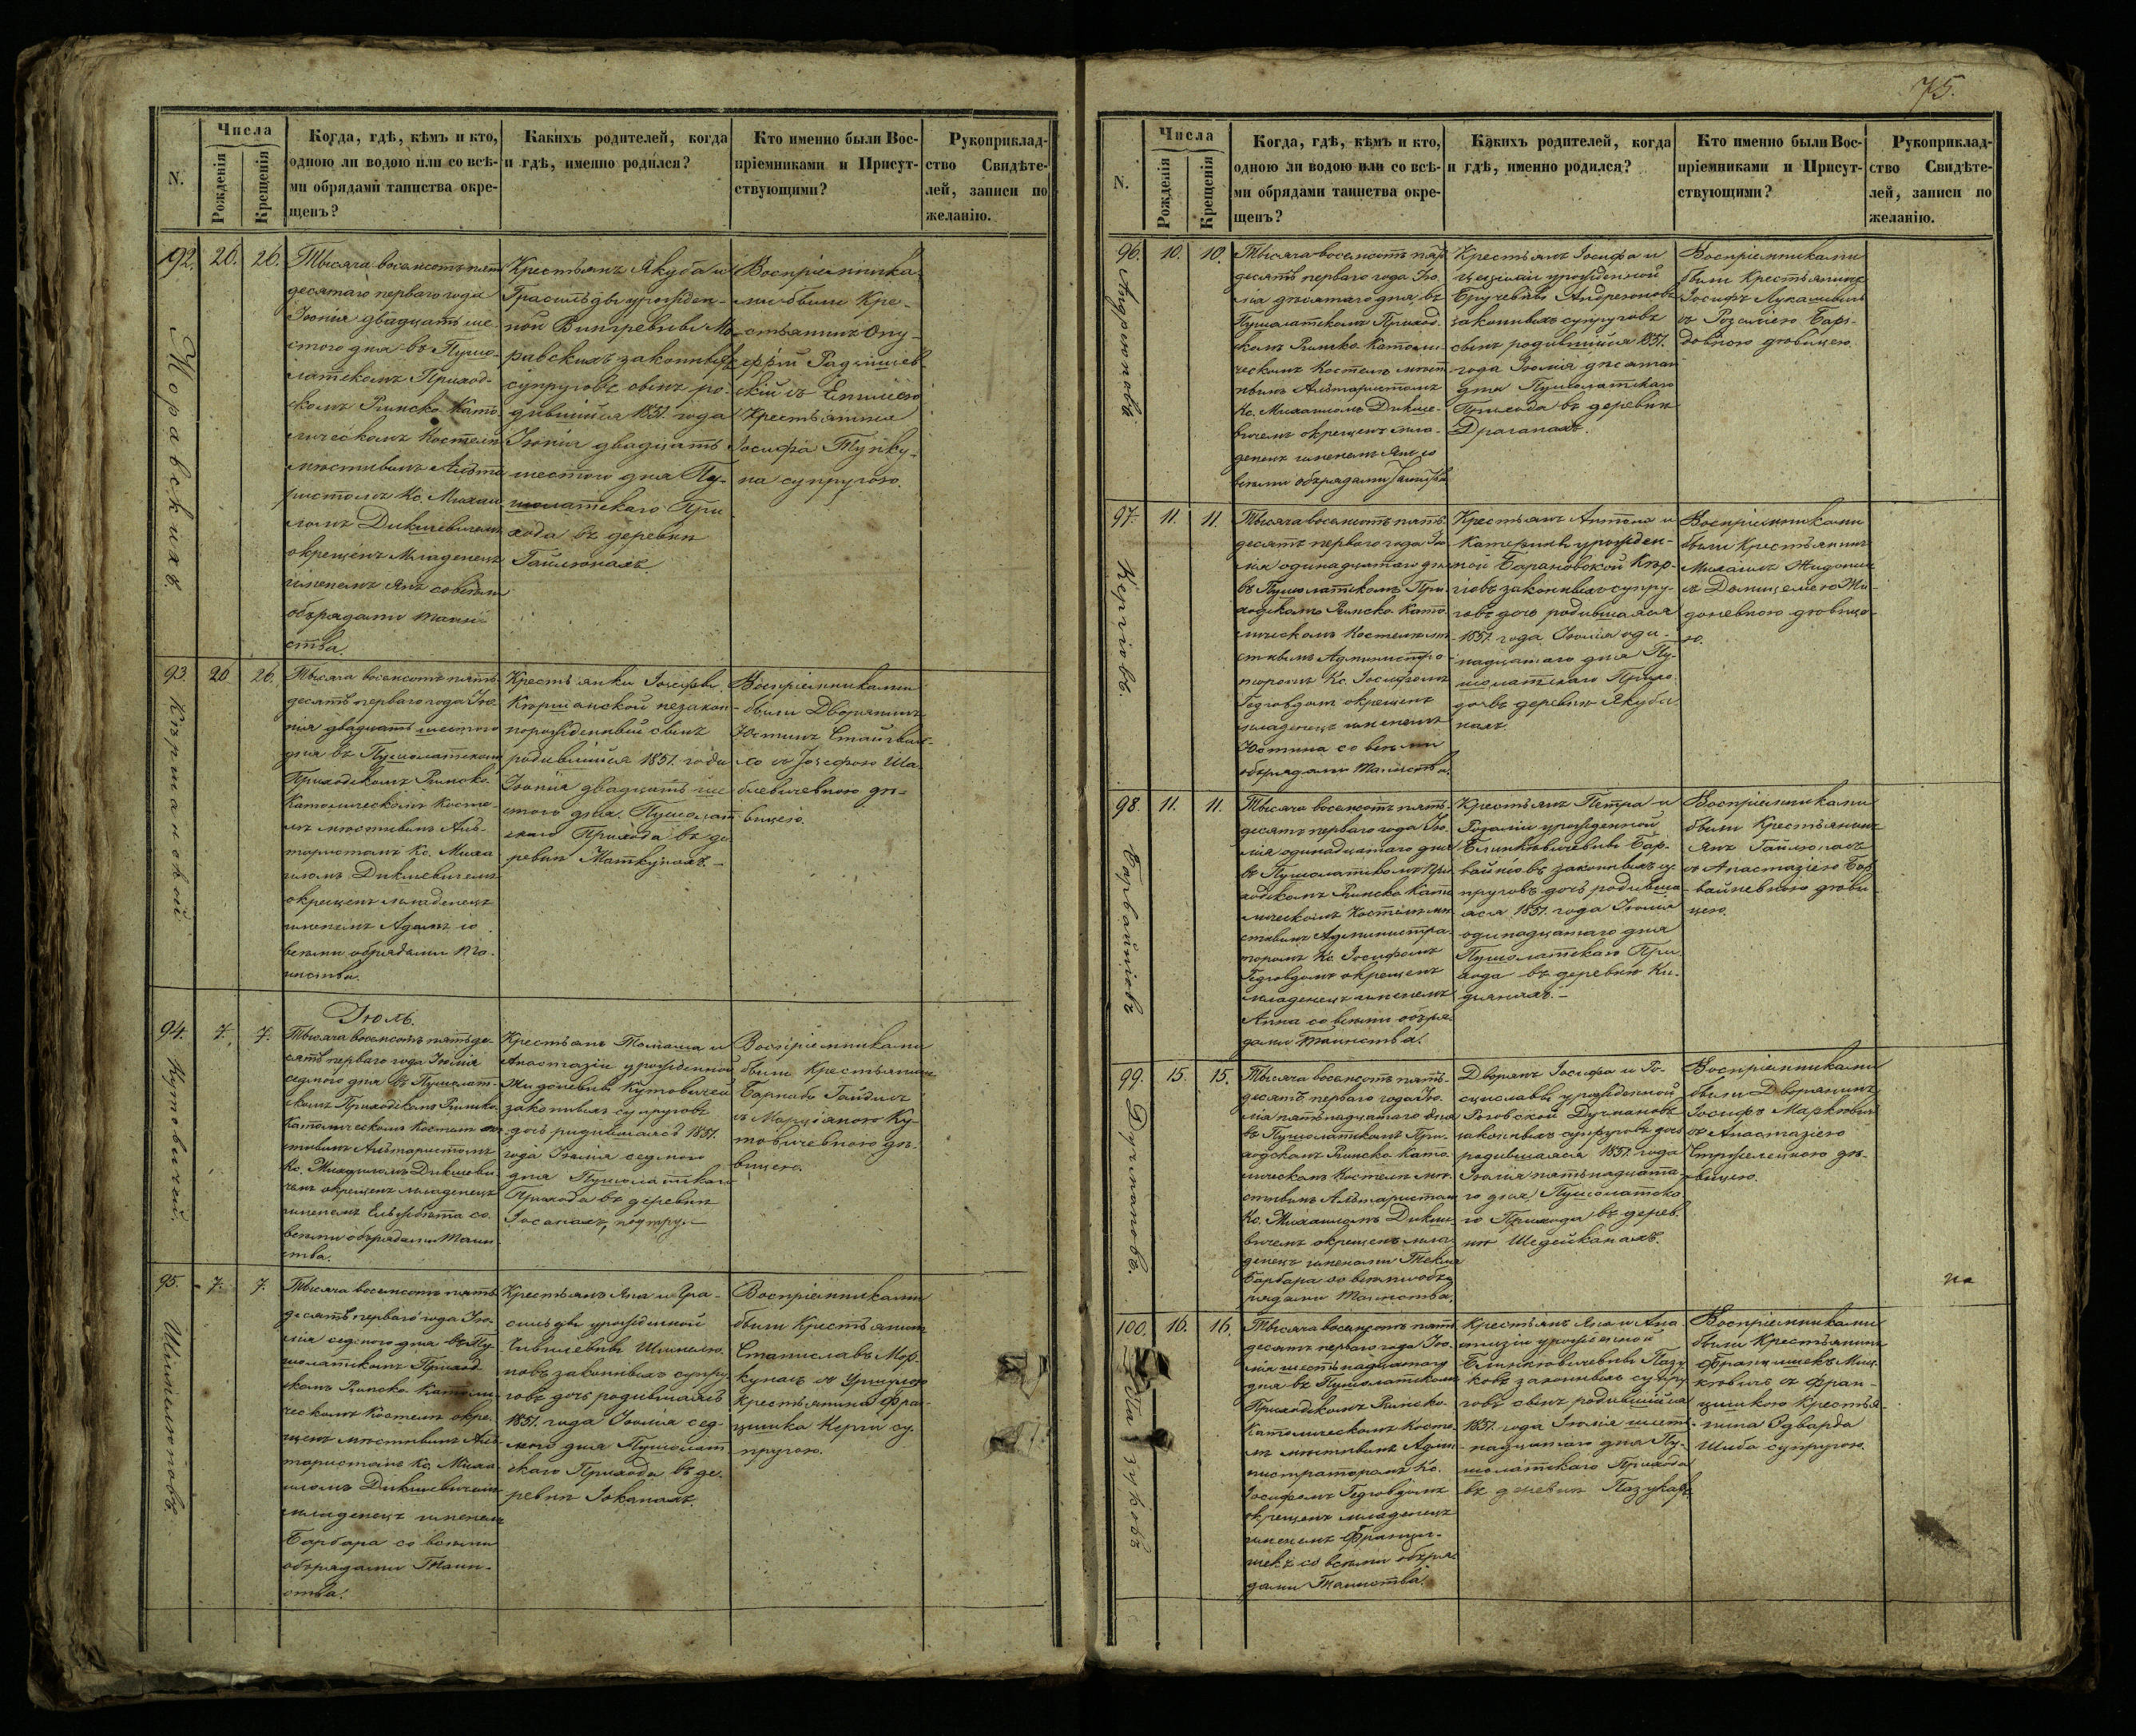 75.
Числа
Рожденія
Крещенія
Когда, гдѣ, кѣмъ и кто,
одною ли водою или со всѣ-
ми обрядами таинства окре-
щенъ?
Какихъ родителей, когда
и гдѣ, именно родился?
Кто именно были Вос-
пріемниками и Присут-
ствующими?
Рукоприклад-
ство Свидѣте-
лей, записи по
желанію.
92. 26. 26.
Моравскихъ.
Тысяча восемсотъ пять
десятаго перваго года
Іюнія двадцать ше-
стого дня въ Пушо-
латскомъ Приход-
скомъ Римско Като-
лическомъ Костелѣ
мѣстнымъ Альта
ристомъ Кс. Михаи
ломъ Дикшевичемъ
окрещенъ младенецъ
именемъ Янъ со всѣми
обрядами Таин-
ства.
Крестьянъ Якуба и
урожден-
ной Мо-
равскихъ законныхъ
супруговъ сынъ ро-
дившійся 1851. года
Іюнія двадцать
шестого дня Пу-
шолатскаго При
хода въ деревни
Гайлюнахъ.
Воспріемника-
ми были Кре-
стьянинъ Ону-
фрій
скій съ Емилією
Крестьянина
Іосифа
на супругою.
93. 26 26.
Тысяча восемсотъ пять
десятъ перваго года Ію
нія двадцать шестого
дня въ Пушолатскомъ
Приходскомъ Римско
Католическомъ Косте-
лѣ мѣстнымъ Аль-
таристомъ Кс. Миха
иломъ Дикшевичемъ
окрещенъ младенецъ
именемъ Адамъ со
всѣми обрядами Та-
инства.
Крестьянки
незакон-
норожденный сынъ
родившійся 1851. года
Іюнія двадцать ше
стого дня Пушолат
скаго Прихода въ де
ревни Маткунахъ.
Воспріемниками
были Дворянинъ
Юстинъ
съ Іозефою Ша-
блевичевною дѣ-
вицею.
Іюль.
94. 7. 7.
Кутовичей.
Тысяча восемсотъ пятьде-
сятъ перваго года Іюлія
седмого дня въ Пушолат-
скомъ Приходскомъ Римско
Католическомъ Костелѣ мѣ-
стнымъ Альтаристомъ
Кс. Михаиломъ Дикшеви
чемъ окрещенъ младенецъ
именемъ Ельжбѣта со
всѣми обрядами Таин
ства.
Крестьянъ Томаша и
Анастазіи урожденной
Жидоневны Кутовичей
законныхъ супруговъ
дочь родившаяся 1851.
года Іюлія седмого
дня Пушолатскаго
Прихода въ деревни
Воспріемниками
были Крестьянинъ
съ Ку-
товичевною дѣ-
вицею.
95. 7. 7.
Тысяча восемсотъ пять
десятъ перваго года Ію-
лія седмого дня въ Пу
шолатскомъ Приход
скомъ Римско Католи
ческомъ Костелѣ окре-
щенъ мѣстнымъ Аль
таристомъ Кс. Миха
иломъ Дикшевичемъ
младенецъ именемъ
Барбара со всѣми
обрядами Таин-
ства.
Крестьянъ Яна и
урожденной
законныхъ супру
говъ дочь родившаяся
1851. года Іюлія сед-
мого дня Пушолат
скаго Прихода въ де-
ревни
Воспріемниками
были Крестьянинъ
Станиславъ Мор-
кунасъ съ Уршулою
Крестьянина Фран
цишка Керги су-
пругою.
Числа
Рожденія
Крещенія
Когда, гдѣ, кѣмъ и кто,
одною ли водою или со всѣ-
ми обрядами таинства окре-
щенъ?
Какихъ родителей, когда
и гдѣ, именно родился?
Кто именно были Вос-
пріемниками и Присут-
ствующими?
Рукоприклад-
ство Свидѣте-
лей, записи по
желанію.
96. 10. 10.
Андрюновъ.
Тысяча восемсотъ пять
десятъ перваго года Ію-
лія десятаго дня въ
Пушолатскомъ Приход
скомъ Римско Католи-
ческомъ Костелѣ мѣст
нымъ Альтаристомъ
Кс. Михаиломъ Дикше-
вичемъ окрещенъ мла-
денецъ именемъ Янъ со
всѣми обрядами Таинства
Крестьянъ Іосифа и
урожденной
законныхъ супруговъ
сынъ родившійся 1851.
года Іюлія десятаго
дня Пушолатскаго
Прихода въ деревни
Драганахъ.
Воспріемниками
были Крестьянинъ
Іосифъ
съ Розалією
дѣвицею.
97. 11. 11.
Кергіовъ.
Тысяча восемсотъ пять-
десятъ перваго года Ію
лія одинадцатаго дня
въ Пушолатскомъ При
ходскомъ Римско Като-
лическомъ Костелѣ мѣ
стнымъ Администра
торомъ Кс. Іосифомъ
Гедговдомъ окрещенъ
младенецъ именемъ
Юстина со всѣми
обрядами Таинства.
Крестьянъ Антона и
урожден-
ной Барановской Кер-
гіовъ законныхъ супру-
говъ дочь родившаяся
1851. года Іюлія оди-
надцатаго дня Пу-
шолатскаго Прихо
да въ деревни Якубо
нахъ.
Воспріемниками
были Крестьянинъ
Михаилъ
съ Доминцелею Жи-
доневною дѣвице-
ю.
98. 11. 11.
Тысяча восемсотъ пять-
десятъ перваго года Ію-
лія одинадцатаго дня
въ Пушолатскомъ При
ходскомъ Римско Като
лическомъ Костелѣ мѣ
стнымъ Администра-
торомъ Кс. Іосифомъ
Гедговдомъ окрещенъ
младенецъ именемъ
Анна со всѣми обря-
дами Таинства.
Крестьянъ Петра и
Розаліи урожденной
законныхъ су-
пруговъ дочь родивша
яся 1851. года Іюлія
одинадцатаго дня
Пушолатскаго При
хода въ деревни Ки-
Воспріемниками
были Крестьянинъ
Янъ Гайлюнасъ
съ Анастазіею Бар
вайневною дѣви-
цею.
99. 15. 15.
Дугмановъ.
Тысяча восемсотъ пять-
десятъ перваго года Ію-
лія пятьнадцатаго дня
въ Пушолатскомъ При-
ходскомъ Римско Като-
лическомъ Костелѣ мѣ-
стнымъ Альтаристомъ
Кс. Михаиломъ Дикше
вичемъ окрещенъ мла
денецъ именами Текля
Барбара со всѣми об-
рядами Таинства.
Дворянъ Іосифа и
урожденной
Дугмановъ
законныхъ супруговъ дочь
родившаяся 1851. года
Іюлія пятьнадцата-
го дня Пушолатска
го Прихода въ дерев.
нѣ Шедейканахъ.
Воспріемниками
были Дворянинъ
Іосифъ
съ Анастазіею
дѣ-
вицею.
на
100. 16. 16.
Пазуковъ
Тысяча восемсотъ пять
десятъ перваго года Ію-
лія шестьнадцатаго
дня въ Пушолатскомъ
Приходскомъ Римско-
Католическомъ Косте-
лѣ мѣстнымъ Адми
нистраторомъ Кс.
Іосифомъ Гедговдомъ
окрещенъ младенецъ
именемъ Францы-
шекъ со всѣми обря-
дами Таинства.
Крестьянъ Яна и Ана
стазіи урожденной
Пазу
ковъ законныхъ супру
говъ сынъ родившійся
1851. года Іюлія шесть
надцатаго дня Пу-
шолатскаго Прихода
въ деревни
Воспріемниками
были Крестьянинъ
Францишекъ Миц-
кевичъ съ Фран-
цишкою Крестья-
нина Эдварда
Шиба супругою.